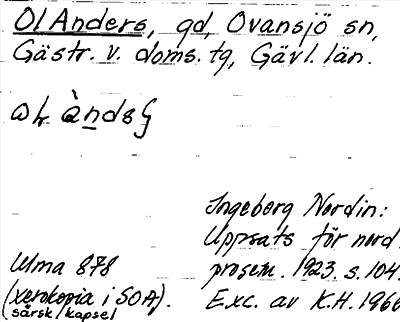 Ol Anders, gd, Ovansjö sn,
Gästr. v. doms. tg, Gävl. län.
Ingeborg Nordin:
Uppsats för nord.
prosem. 1923. s. 104.
Exc. av K.H. 1966
Ulma 878
(xerokopia i SOA).
särsk. kapsel